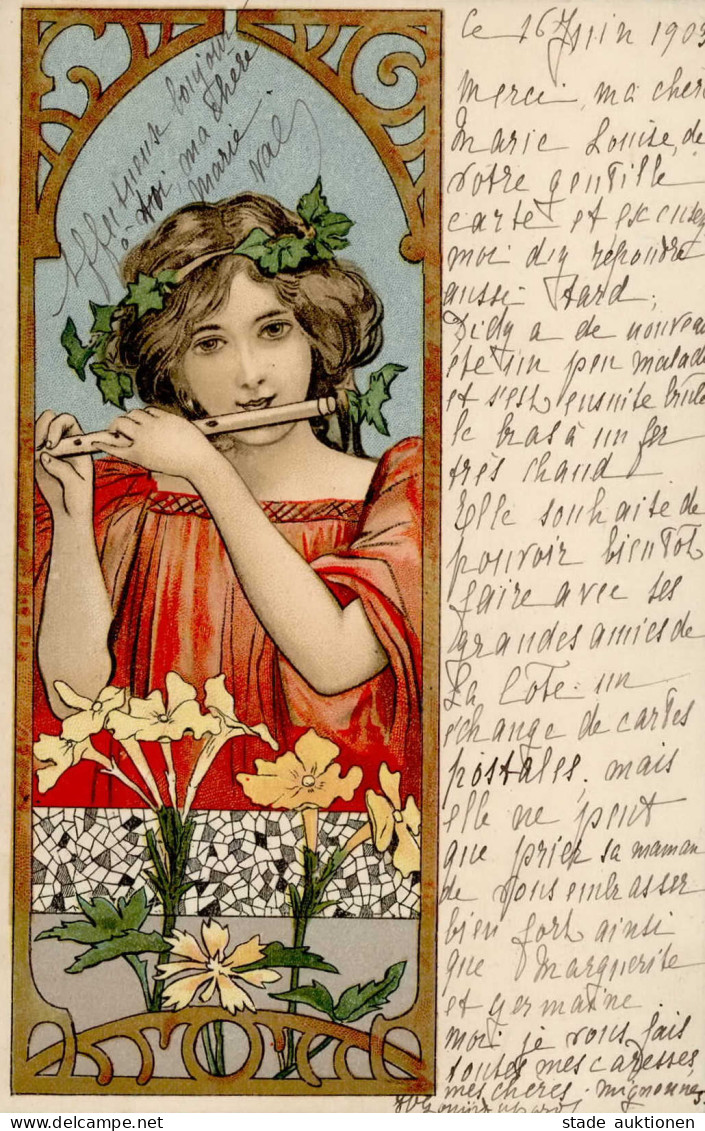 Affectueuse bonjour
à toi, ma chère
Marie
Val
Ce 16 Juin 1903
Merci, ma chère
Marie Louise, de
votre gentille
carte et excusez
moi d'y répondre
aussi tard,
Didy a de nouveau
été un peu malade
et s'est ensuite brulé
le bras à un fer
très chaud
Elle souhaite de
pouvoir bientôt
faire avec ses
grandes amies de
La Côte un
échange de cartes
postales, mais
elle ne peut
que prier sa maman
de vous embrasser
bien fort ainsi
que Marguerite
et germaine
moi je vous fais
toutes mes caresses,
mes chères mignonnes
stade auktionen